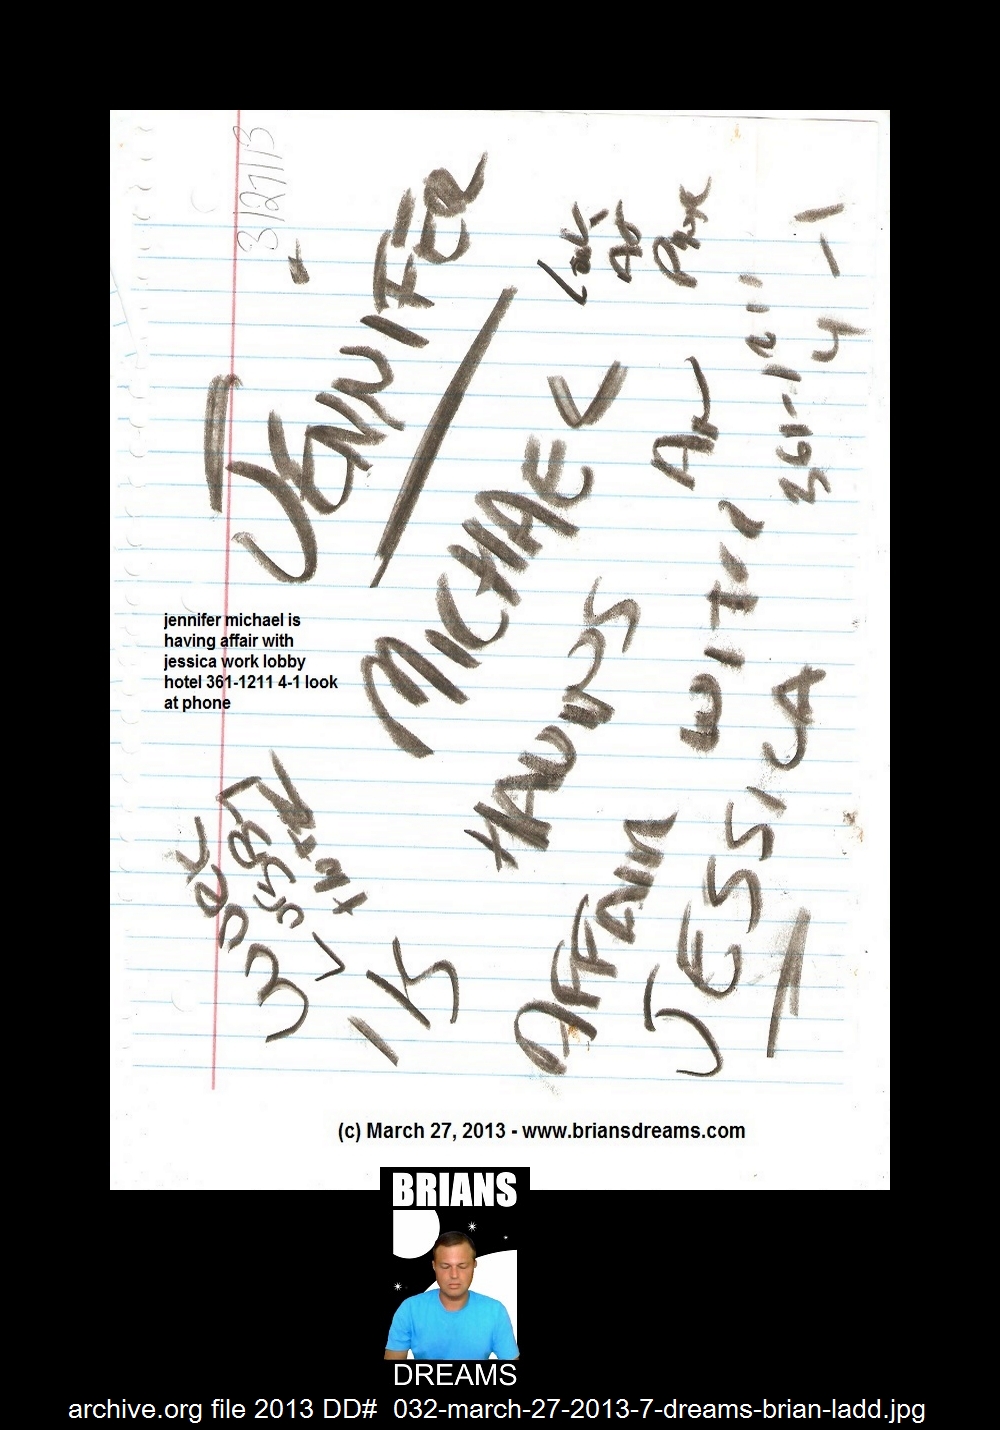 3/27/13
JENNIFER
MICHAEL
IS
HAVING
AN
AFFAIR
WITH
JESSICA
361-1211
4-1
jennifer michael is
having affair with
jessica work lobby
hotel 361-1211 4-1 look
at phone
(c) March 27, 2013 - www.briansdreams.com
BRIANS
DREAMS
archive.org file 2013 DD# 032-march-27-2013-7-dreams-brian-ladd.jpg